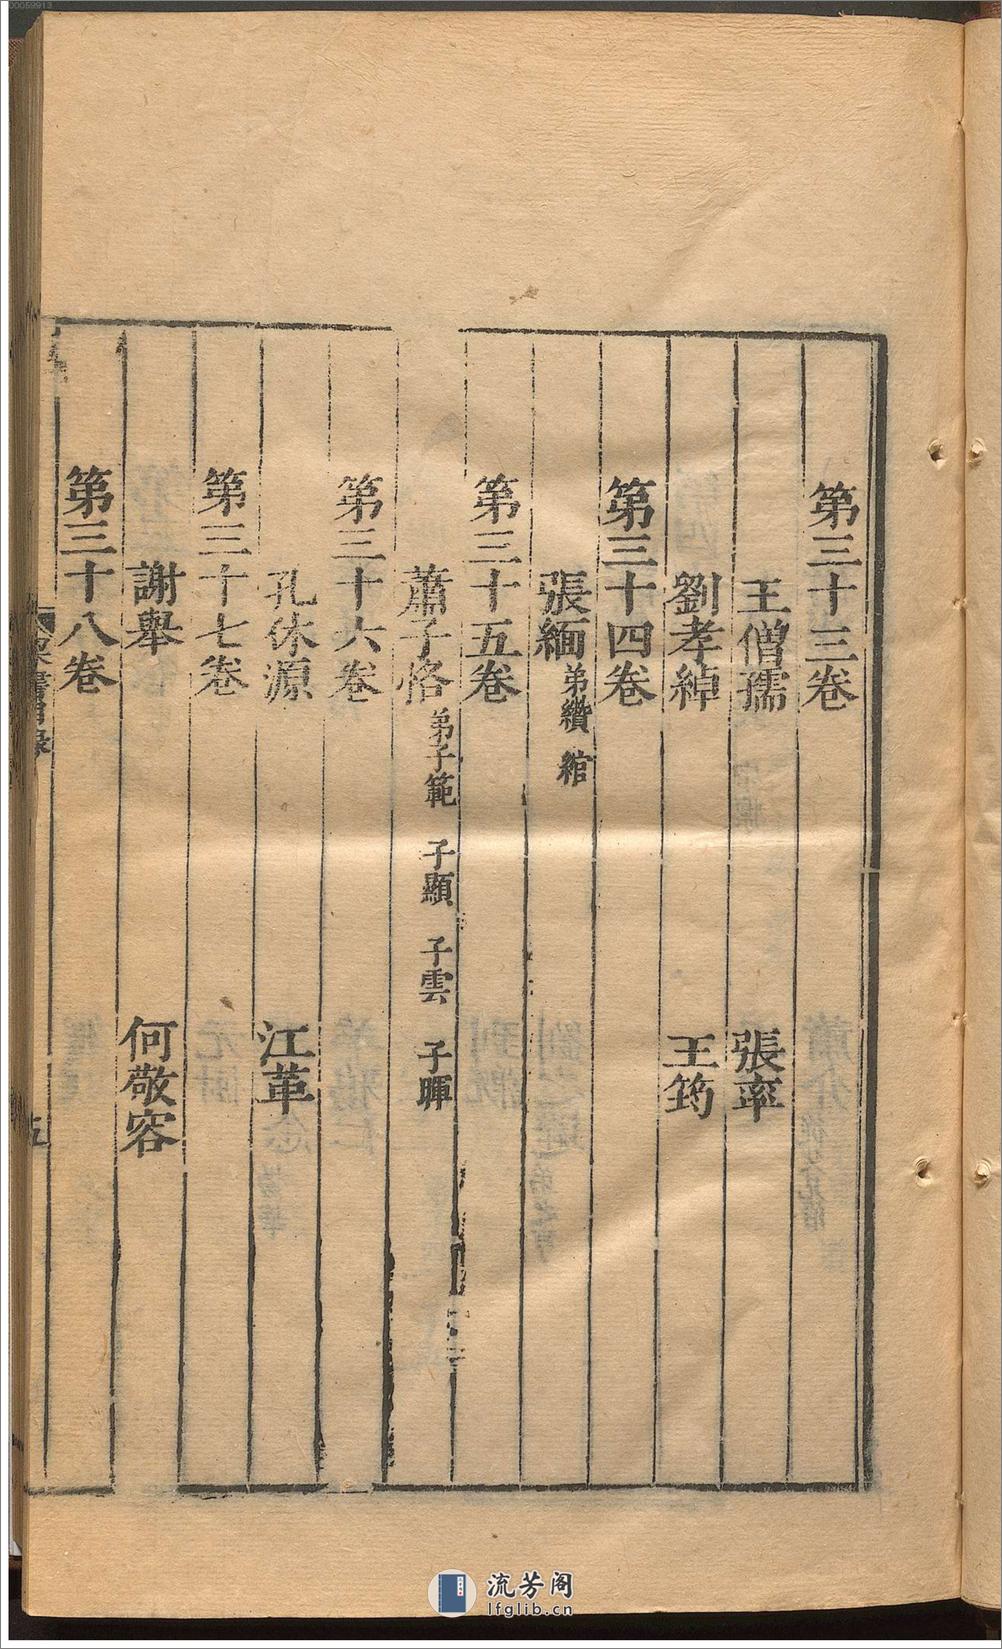 第三十三卷
王僧孺 張率
劉孝綽 王筠
第三十四卷
張緬 弟纘 綰
第三十五卷
蕭子恪 弟子範 子顯 子雲 子暉
第三十六卷
孔休源 江革
第三十七卷
謝舉 何敬容
第三十八卷
梁書目錄
五
流芳阁
lfglib.cn
00059913